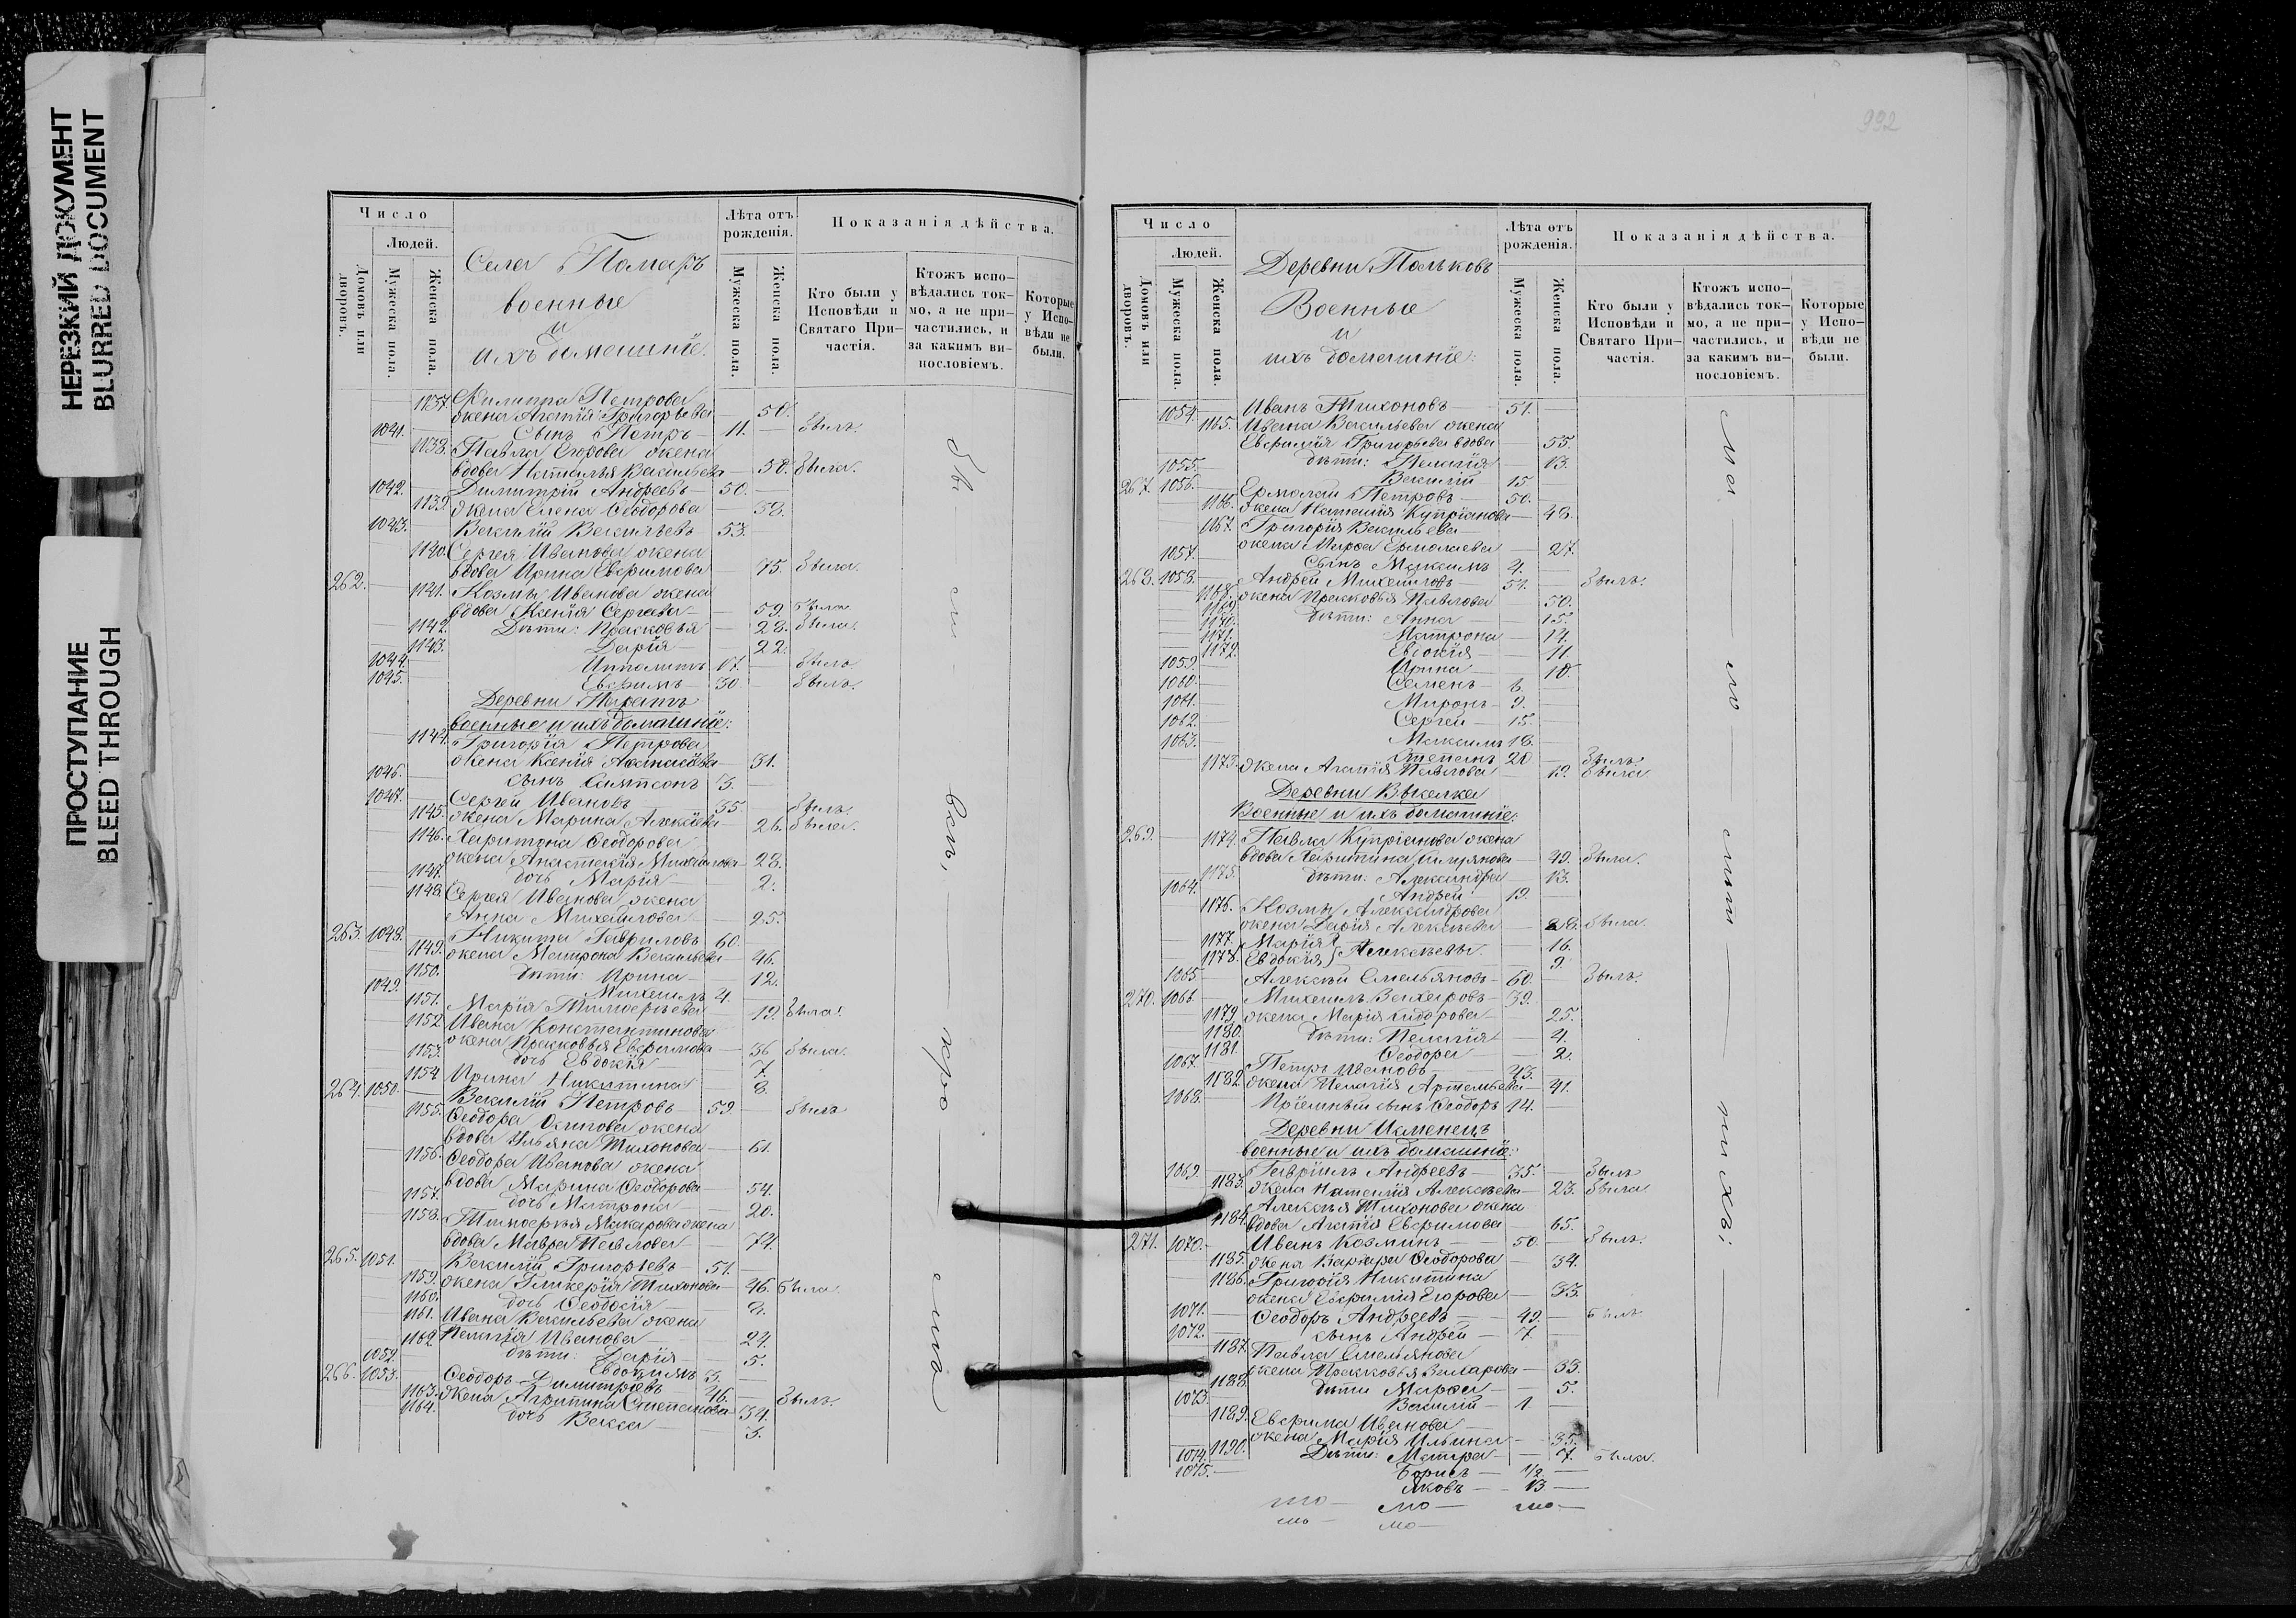 НЕРЕЗКИЙ ДОКУМЕНТ
BLURRED DOCUMENT
ПРОСТУПАНИЕ
BLEED THROUGH
Число
Людей.
Домовъ или дворовъ.
Мужеска пола.
Женска пола.
Села Помаръ
военные
и
ихъ домашніе:
Лѣта отъ рожденія.
Мужеска пола.
Женска пола.
Показанія дѣйства.
Кто были у Исповѣди и Святаго Причастія.
Ктожъ исповѣдались токмо, а не причастились, и за какимъ винословіемъ.
Которые у Исповѣди не были.
1137. Филиппа Петрова
жена Агапія Григорьева — 50.
1041. Сынъ Петръ — 11. — Былъ.
1138. Павла Егорова жена
вдова Наталья Васильева — 58. Была.
1042. Димитрій Андреевъ 50.
1139. жена Елена Ѳеодорова — 58.
1043. Василій Васильевъ 53.
1140. Сергея Иванова жена
вдова Ирина Ефимова — 75. Была.
262. 1141. Козмы Иванова жена
вдова Ксенія Сергеева — 59. Была
1142. Дѣти: Прасковья — 28. Была.
1143. Дарія — 22.
1044. Ипполитъ 17. Былъ
1045. Ефимъ 30. Былъ.
Деревни Паратъ
военные и ихъ домашніе:
1144. Григорія Петрова
жена Ксенія Аѳанасьева — 31.
1046. сынъ Сампсонъ 3.
1047. Сергей Ивановъ 35. Былъ.
1145. жена Марина Алексѣева — 26. Была.
1146. Харитона Ѳеодорова
жена Анастасія Михайлова — 28.
1147. дочь Марія — 2.
1148. Сергея Иванова жена
Анна Михайлова — 25.
263. 1048. Никита Гавриловъ 60.
1149. жена Матрона Васильева — 46.
1150. дѣти: Ирина — 12.
1049. Михаилъ 4.
1151. Марія Тимоѳеева — 19. Была.
1152. Ивана Константинова
жена Прасковья Ефимова — 36 Была.
1153. дочь Евдокія — 7.
1154. Ирина Никитина — 8.
264. 1050. Василій Петровъ 59. Былъ
1155. Ѳеодора Осипова жена
вдова Ульяна Тихонова — 61.
1156. Ѳеодора Иванова жена
вдова Марина Ѳеодорова — 54.
1157. дочь Матрона — 20.
1158. Тимоѳея Макарова жена
вдова Мавра Павлова — 74.
265. 1051. Василій Григорьевъ 51.
1159. жена Гликерія Тихонова — 46. Была
1160. дочь Ѳеодосія — 9.
1161. Ивана Васильева жена
Пелагія Иванова — 24.
1162. дѣти: Дарія — 5.
1052. Евдокимъ 3.
266. 1053. Ѳеодоръ Димитріевъ 46. Былъ.
1163. жена Агрипина Степанова 34.
1164. дочь Васса — 3.
992
Число
Людей.
Домовъ или дворовъ.
Мужеска пола.
Женска пола.
Деревни Польковъ
Военные
и
ихъ домашніе:
Лѣта отъ рожденія.
Мужеска пола.
Женска пола.
Показанія дѣйства.
Кто были у Исповѣди и Святаго Причастія.
Ктожъ исповѣдались токмо, а не причастились, и за какимъ винословіемъ.
Которые у Исповѣди не были.
1054. Иванъ Тихоновъ — 51.
1165. Ивана Васильева жена
Евфимія Григорьева вдова — 55.
дѣти: Пелагія — 13.
1055. Василій 15.
267. 1056. Ермолай Петровъ 50.
1166. жена Наталія Купріанова — 48.
1167. Григорія Васильева
жена Марѳа Ермолаева — 27.
1057. Сынъ Максимъ 4.
268. 1058. Андрей Михайловъ 54. Былъ.
1168. жена Прасковья Павлова — 50.
1169. дѣти: Анна — 15.
1170. Матрона — 14.
1171. Евдокія — 11.
1172. Ирина — 10.
1059. Семенъ 6.
1060. Миронъ 9.
1061. Сергей 15.
1062. Максимъ 18.
1063. Степанъ 20 Былъ.
1173. жена Агапія Павлова — 19. Была.
Деревни Выселка
Военные и ихъ домашніе:
269. 1174. Павла Купріанова жена
вдова Харитина — 49. Была.
1175. дѣти: Александра — 13.
1064. Андрей 19.
1176. Козмы Александрова
жена Дарія Алексѣева — 28. Была.
1177. Марія } 16.
1178. Евдокія } Алексѣевы. 9.
1065. Алексѣй Емельяновъ 60. Былъ.
270. 1066. Михаилъ Захаровъ 39.
1179. жена Марія Сидорова — 25.
1180. дѣти: Пелагія — 4.
1181. Ѳеодора — 2.
1067. Петръ Ивановъ 43.
1182. жена Пелагія Артемьева — 41.
1068. Пріемный сынъ Ѳеодоръ 14.
Деревни Исменецъ
военные и ихъ домашніе:
1069. Гавріилъ Андреевъ 35. Былъ
1183. жена Наталія Алексѣева — 23. Была.
Алексѣя Тихонова жена
1184. вдова Агапія Ефимова — 65.
271. 1070. Иванъ Козминъ 50. Былъ.
1185. жена Варвара Ѳеодорова — 34.
1186. Григорія Никитина
жена Евфимія Егорова — 33.
1071. Ѳеодоръ Андреевъ 49. Былъ
1072. сынъ Андрей — 7.
1187. Павла Емельянова
жена Прасковья Захарова — 33.
1188. дѣти Марѳа — 5.
1073. Василій — 1
1189. Ефима Иванова
жена Марія Ильина — 35.
1190. Дѣти: — 7. Была.
1074. Борисъ — 1/2
1075. Яковъ — 13